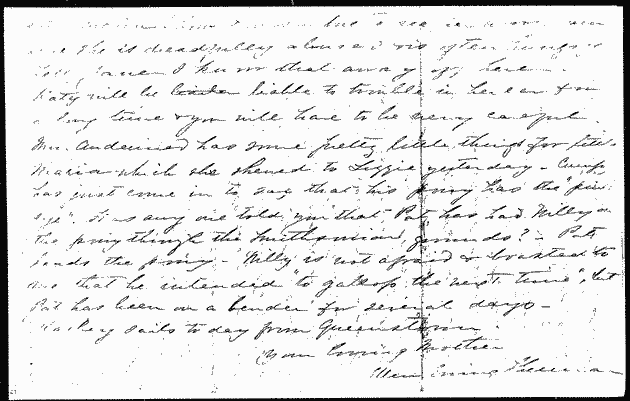 but to see
she is dreadfully abused & so often things
I know that away off here
Katy will be liable to trouble in her ear for
a long time & you will have to be very careful
Mrs. has some pretty little things for little
Maria which she showed to Lizzie yesterday - Cump
has just come in to say that his pony has the "pink
eye". Has any one told you that Pat has had Willy on
the pony through the Smithsonian grounds? - Pat
leads the pony - Willy is not afraid & boasted to
me that he intended "to gallop the next time", but
Pat has been on a bender for several days -
sails to day from Queenstown.
Your loving Mother
Ellen Ewing Sherman